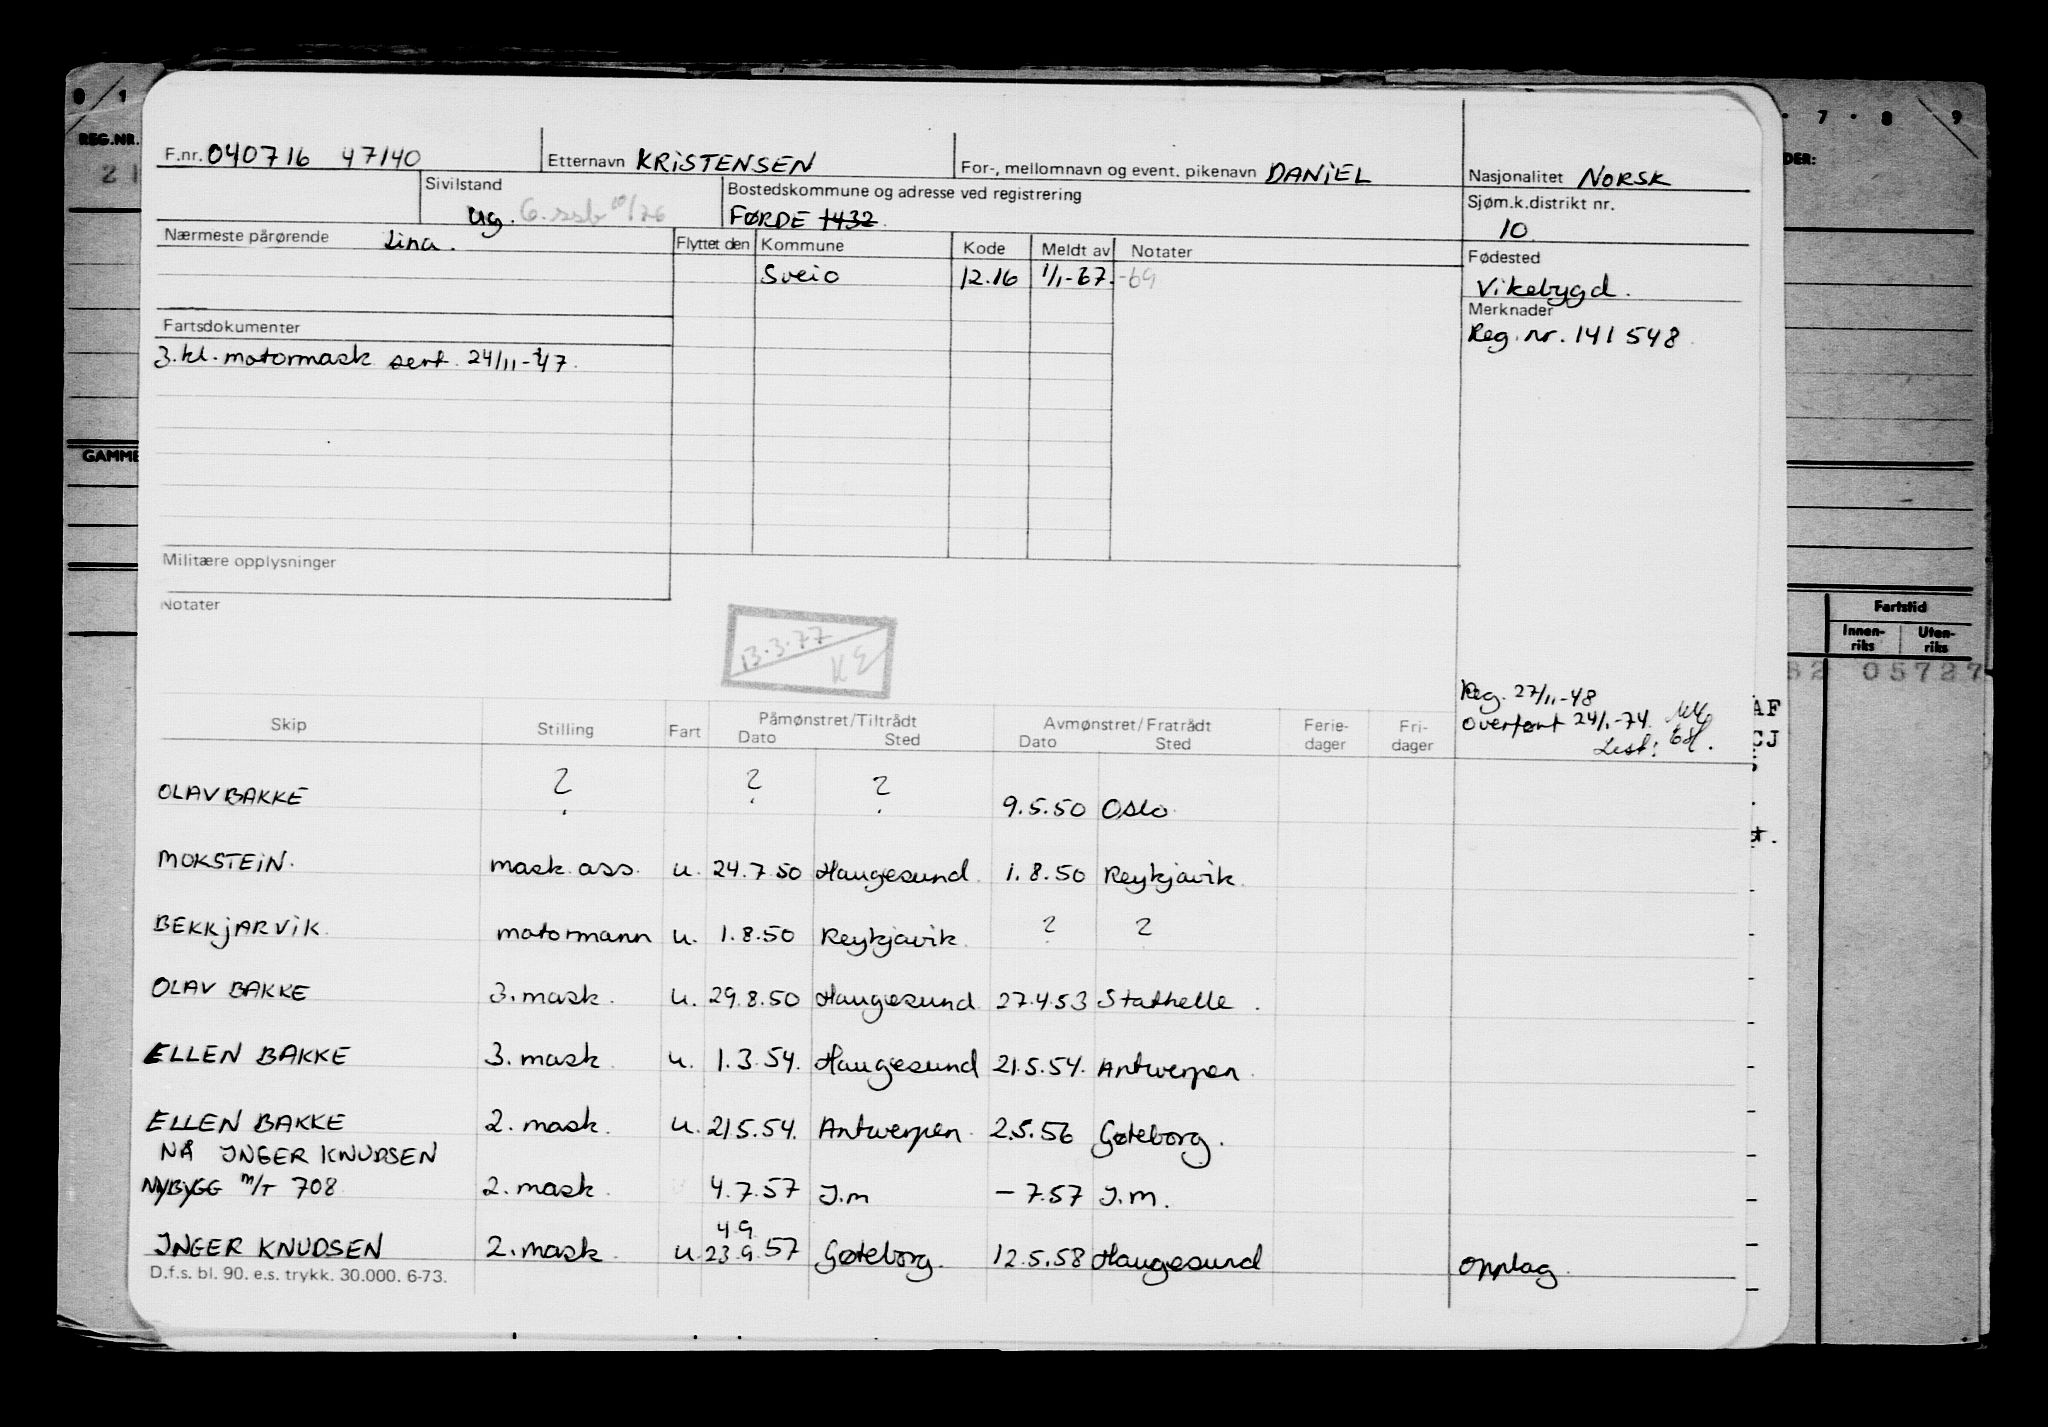 F.nr. 040716 47140 Etternavn KRISTENSEN For-, mellomnavn og event. pikenavn DANIEL Nasjonalitet NORSK
Sivilstand ug. Bostedskommune og adresse ved registrering FØRDE 1432 Sjøm.k.distrikt nr. 10
Nærmeste pårørende Lina. Flyttet den Kommune Kode Meldt av Notater Fødested
Sveio 12.16 1/1-67. -69 Vikebygd.
Merknader
Fartsdokumenter Reg. nr. 141548
3. kl. motormask sert. 24/11-47.
Militære opplysninger
Notater
13.3.77
KE
Reg. 27/11-48
Overført 24/1-74.
Skip Stilling Fart Påmønstret/Tiltrådt Avmønstret/Fratrådt Ferie- Fri-
Dato Sted Dato Sted dager dager
OLAV BAKKE ? ? ? 9.5.50 Oslo
MOKSTEIN. mask. ass. u. 24.7.50 Haugesund 1.8.50 Reykjavik.
BEKKJARVIK motormann u. 1.8.50 Reykjavik. ? ?
OLAV BAKKE 3. mask. u. 29.8.50 Haugesund 27.4.53 Stathelle.
ELLEN BAKKE 3. mask. u. 1.3.54. Haugesund 21.5.54. Antwerpen.
ELLEN BAKKE 2. mask. u. 21.5.54. Antwerpen. 2.5.56 Gøteborg.
NÅ INGER KNUDSEN
NYBYGG M/T 708 2. mask. 4.7.57 I.m - 7.57 I.m.
4.9
INGER KNUDSEN 2. mask. u. 23.9.57 Gøteborg. 12.5.58 Haugesund Opplag.
D.f.s. bl. 90. e.s. trykk. 30.000. 6-73.
0 1
REG.NR.
21
GAMME
7 8 9
DER:
Fartstid
Innen-
riks
Uten-
riks
82 05727
AF
CJ